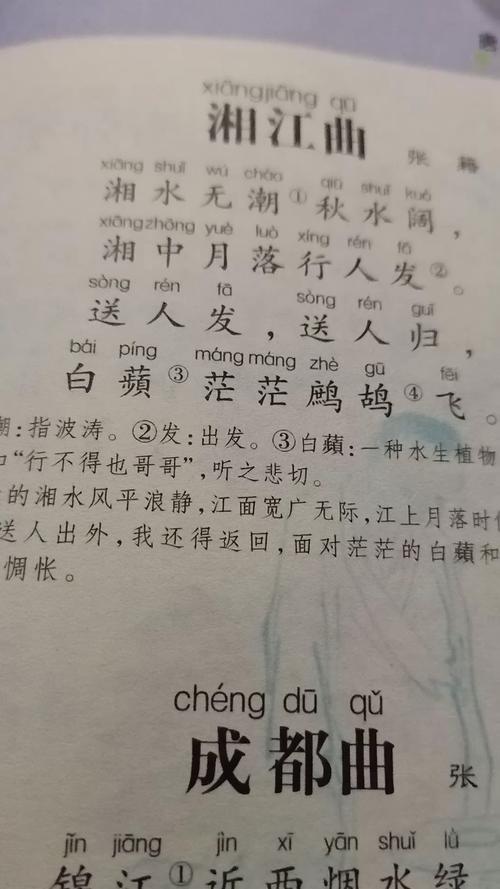 xiāngjiāng qǔ
湘江曲
张 籍
xiāng shuǐ wú cháo qiū shuǐ kuò
湘水无潮①秋水阔，
xiāngzhōng yuè luò xíng rén fā
湘中月落行人发②。
sòng rén fā sòng rén guī
送人发，送人归，
bái píng máng máng zhè gū fēi
白蘋③茫茫鹧鸪④飞。
潮：指波涛。②发：出发。③白蘋：一种水生植物
“行不得也哥哥”，听之悲切。
的湘水风平浪静，江面宽广无际，江上月落时
送人出外，我还得返回，面对茫茫的白蘋和
惆怅。
chéng dū qǔ
成都曲
张
jǐn jiāng jìn xī yān shuǐ lǜ
锦江①近西烟水绿